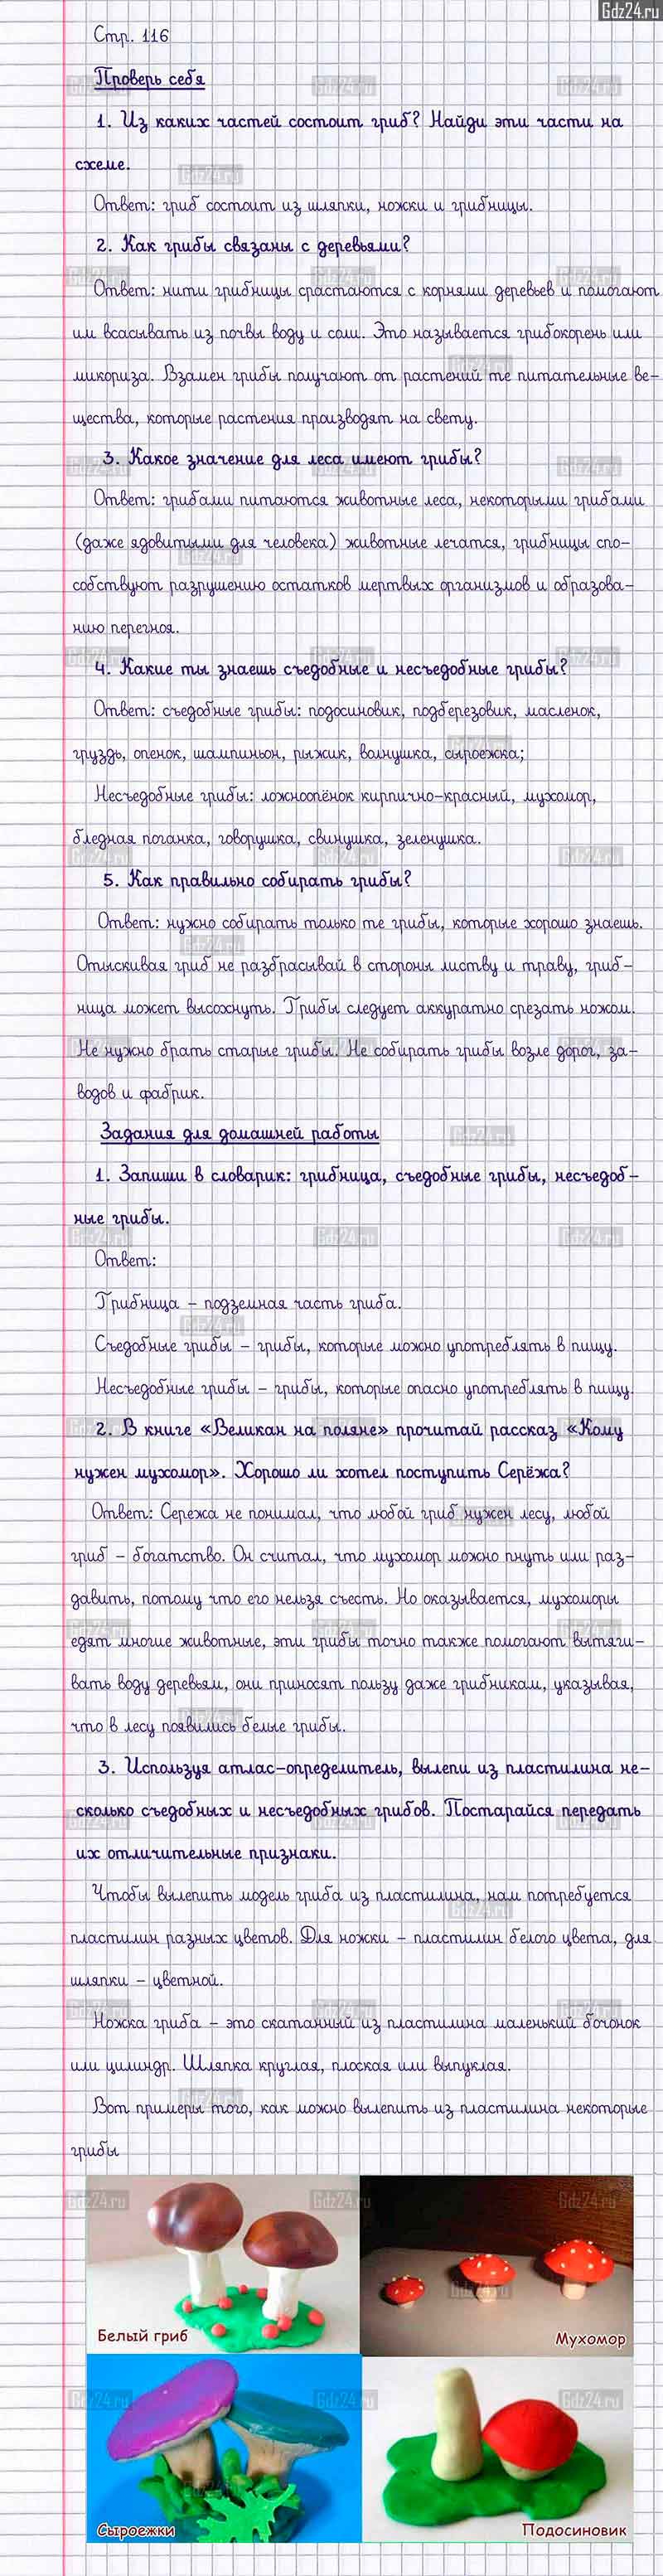 Gdz24.ru
Стр. 116
Проверь себя
1. Из каких частей состоит гриб? Найди эти части на
схеме.
Ответ: гриб состоит из шляпки, ножки и грибницы.
2. Как грибы связаны с деревьями?
Ответ: нити грибницы срастаются с корнями деревьев и помогают
им всасывать из почвы воду и соли. Это называется грибокорень или
микориза. Взамен грибы получают от растений те питательные ве-
щества, которые растения производят на свету.
3. Какое значение для леса имеют грибы?
Ответ: грибами питаются животные леса, некоторыми грибами
(даже ядовитыми для человека) животные лечатся, грибницы спо-
собствуют разрушению остатков мертвых организмов и образова-
нию перегноя.
4. Какие ты знаешь съедобные и несъедобные грибы?
Ответ: съедобные грибы: подосиновик, подберезовик, масленок,
груздь, опенок, шампиньон, рыжик, волнушка, сыроежка;
Несъедобные грибы: ложноопёнок кирпично-красный, мухомор,
бледная поганка, говорушка, свинушка, зеленушка.
5. Как правильно собирать грибы?
Ответ: нужно собирать только те грибы, которые хорошо знаешь.
Отыскивая гриб не разбрасывай в стороны листву и траву, гриб-
ница может высохнуть. Грибы следует аккуратно срезать ножом.
Не нужно брать старые грибы. Не собирать грибы возле дорог, за-
водов и фабрик.
Задания для домашней работы
1. Запиши в словарик: грибница, съедобные грибы, несъедоб-
ные грибы.
Ответ:
Грибница – подземная часть гриба.
Съедобные грибы – грибы, которые можно употреблять в пищу.
Несъедобные грибы – грибы, которые опасно употреблять в пищу.
2. В книге «Великан на поляне» прочитай рассказ «Кому
нужен мухомор». Хорошо ли хотел поступить Серёжа?
Ответ: Сережа не понимал, что любой гриб нужен лесу, любой
гриб – богатство. Он считал, что мухомор можно пнуть или раз-
давить, потому что его нельзя съесть. Но оказывается, мухоморы
едят многие животные, эти грибы точно также помогают вытяги-
вать воду деревьям, они приносят пользу даже грибникам, указывая,
что в лесу появились белые грибы.
3. Используя атлас-определитель, вылепи из пластилина не-
сколько съедобных и несъедобных грибов. Постарайся передать
их отличительные признаки.
Чтобы вылепить модель гриба из пластилина, нам потребуется
пластилин разных цветов. Для ножки – пластилин белого цвета, для
шляпки – цветной.
Ножка гриба – это скатанный из пластилина маленький бочонок
или цилиндр. Шляпка круглая, плоская или выпуклая.
Вот примеры того, как можно вылепить из пластилина некоторые
грибы
Белый гриб
Мухомор
Сыроежки
Подосиновик